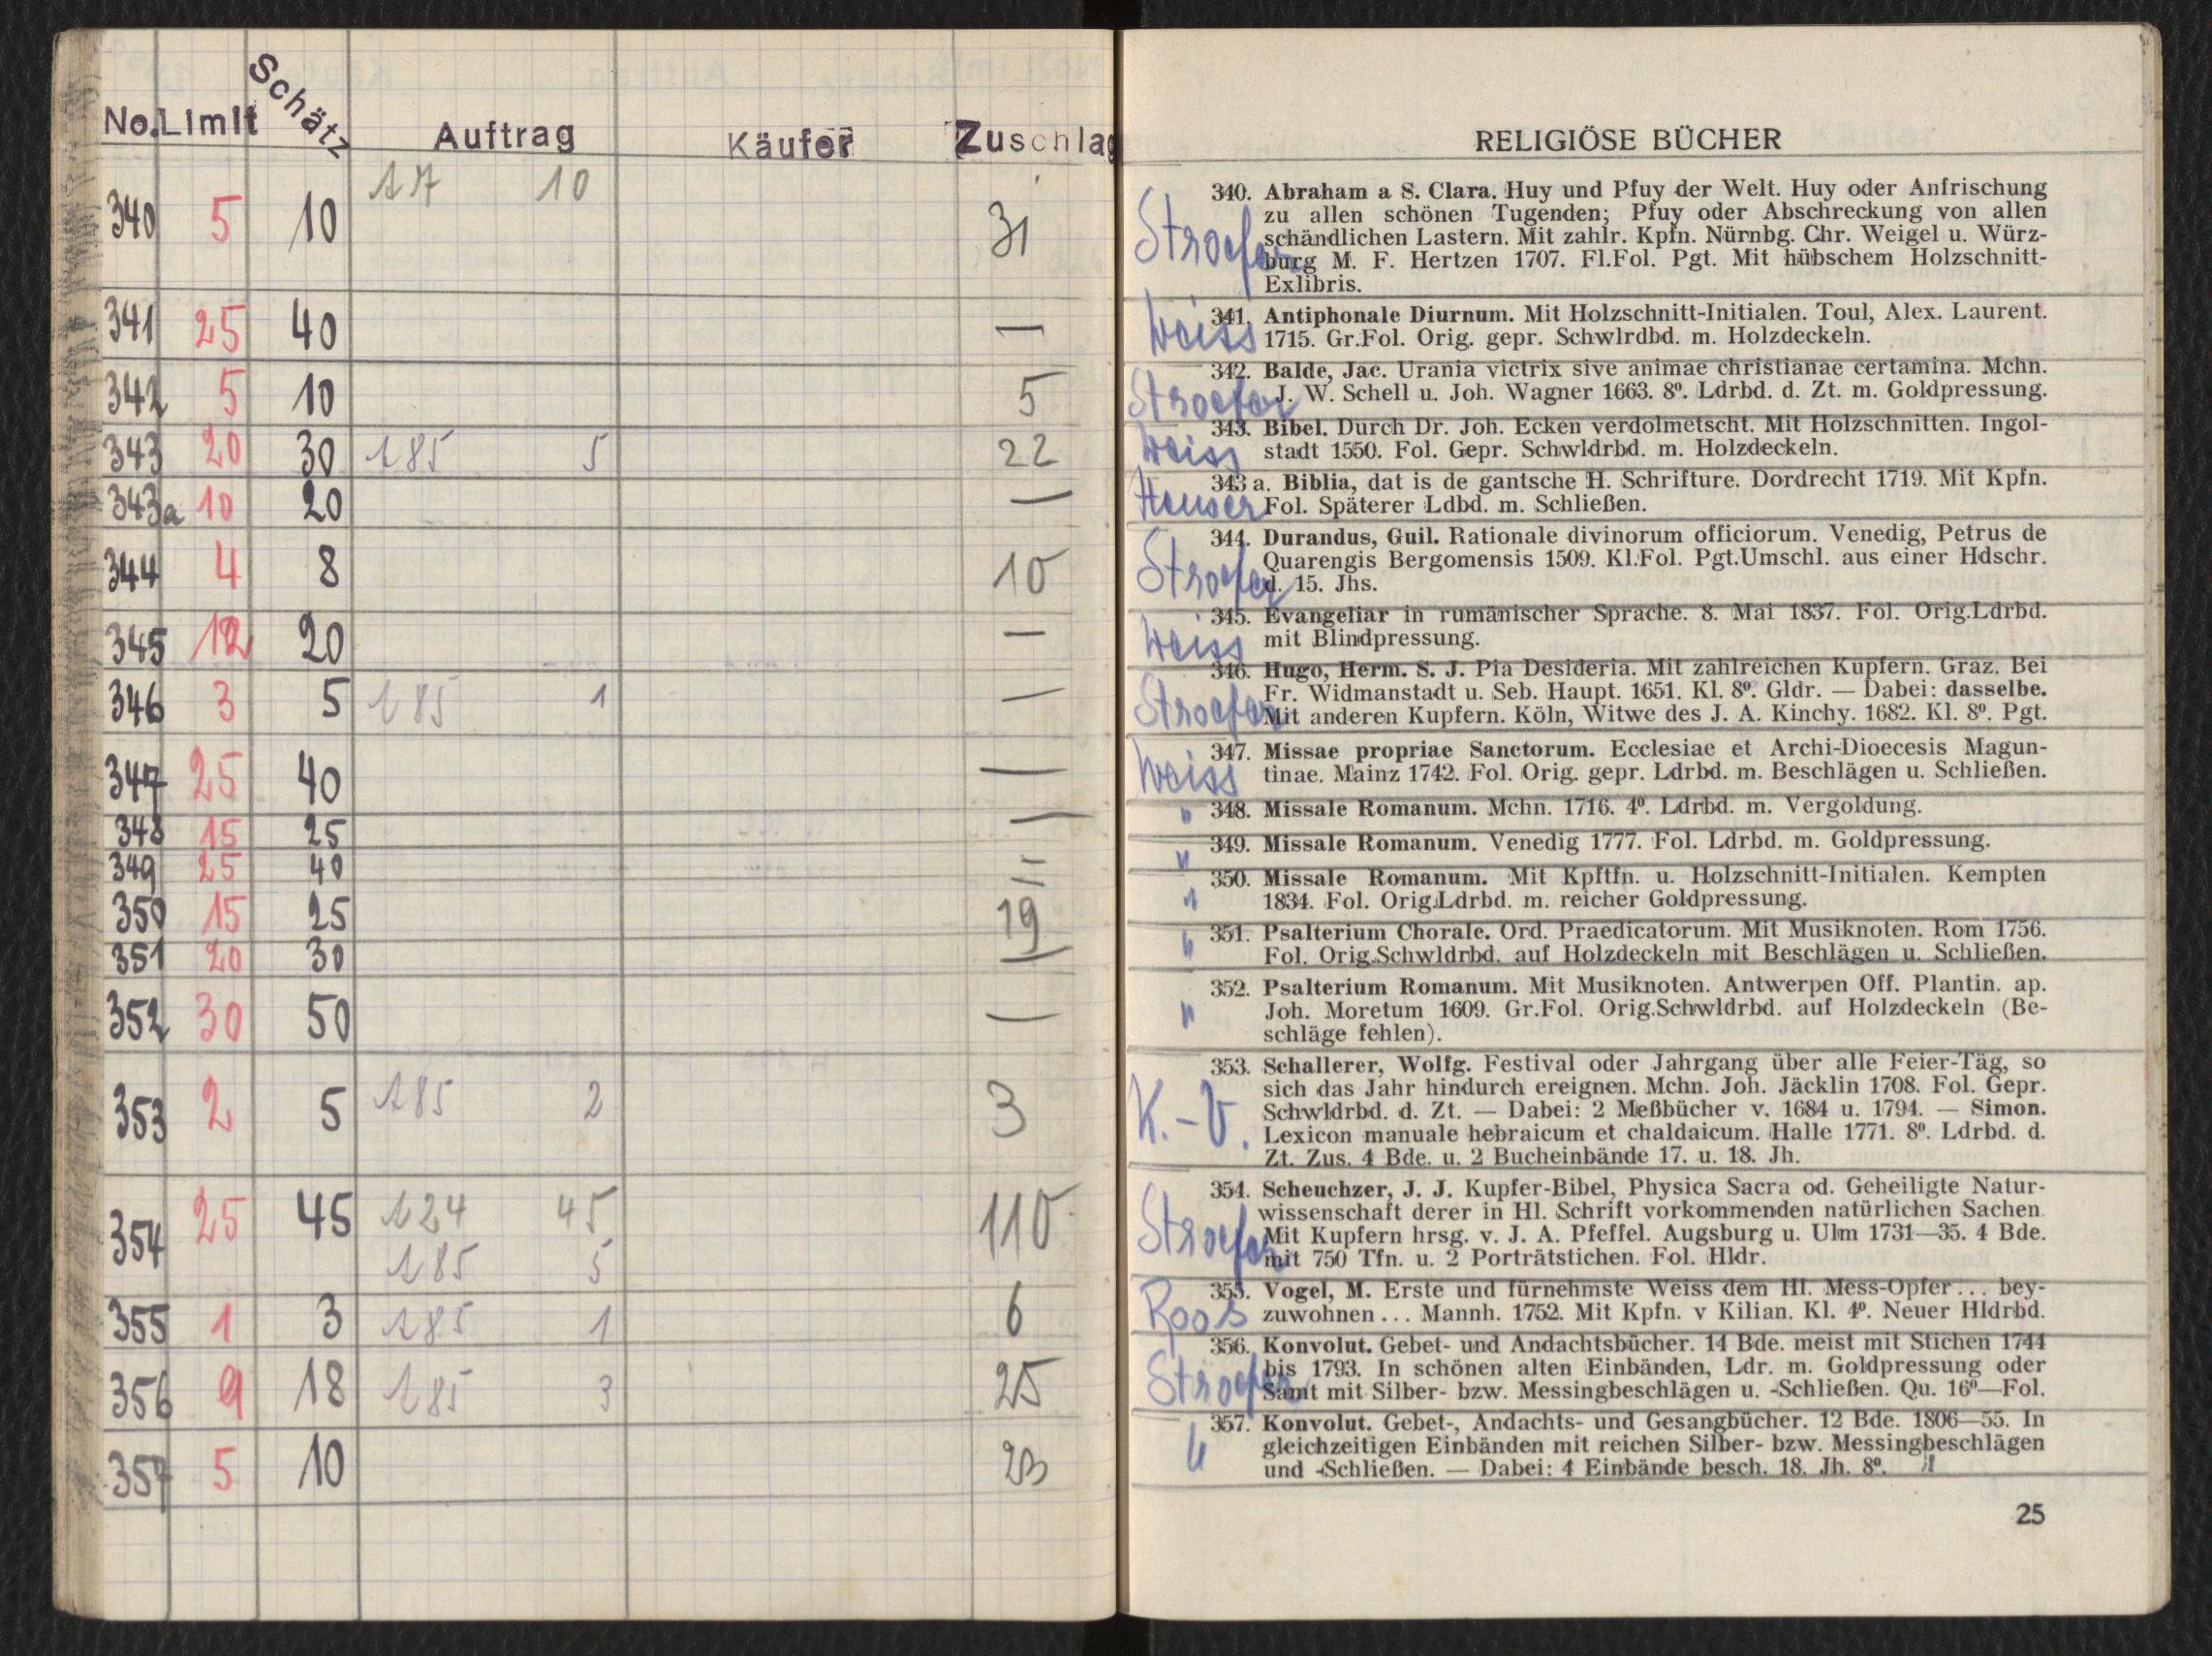 No. Limit Schätz Auftrag Käufer Zuschlag
340 5 10 17 10 31
341 25 40 —
342 5 10 5
343 20 30 185 5 22
343a 10 20 —
344 4 8 10
345 12 20 —
346 3 5 185 1 —
347 25 40 —
348 15 25 —
349 25 40 —
350 15 25 19
351 20 30 —
352 30 50 —
353 2 5 185 2 3
354 25 45 124 45 110
185 5
355 1 3 185 1 6
356 9 18 185 3 25
357 5 10 23
RELIGIÖSE BÜCHER
Stroefer 340. Abraham a S. Clara. Huy und Pfuy der Welt. Huy oder Anfrischung
zu allen schönen Tugenden; Pfuy oder Abschreckung von allen
schändlichen Lastern. Mit zahlr. Kpfn. Nürnbg. Chr. Weigel u. Würz-
burg M. F. Hertzen 1707. Fl.Fol. Pgt. Mit hübschem Holzschnitt-
Exlibris.
Weiss 341. Antiphonale Diurnum. Mit Holzschnitt-Initialen. Toul, Alex. Laurent.
1715. Gr.Fol. Orig. gepr. Schwlrdbd. m. Holzdeckeln.
Stroefer 342. Balde, Jac. Urania victrix sive animae christianae certamina. Mchn.
J. W. Schell u. Joh. Wagner 1663. 8º. Ldrbd. d. Zt. m. Goldpressung.
Weiss 343. Bibel. Durch Dr. Joh. Ecken verdolmetscht. Mit Holzschnitten. Ingol-
stadt 1550. Fol. Gepr. Schwldrbd. m. Holzdeckeln.
Heuser 343 a. Biblia, dat is de gantsche H. Schrifture. Dordrecht 1719. Mit Kpfn.
Fol. Späterer Ldbd. m. Schließen.
Stroefer 344. Durandus, Guil. Rationale divinorum officiorum. Venedig, Petrus de
Quarengis Bergomensis 1509. Kl.Fol. Pgt.Umschl. aus einer Hdschr.
d. 15. Jhs.
Weiss 345. Evangeliar in rumänischer Sprache. 8. Mai 1837. Fol. Orig.Ldrbd.
mit Blindpressung.
Stroefer 346. Hugo, Herm. S. J. Pia Desideria. Mit zahlreichen Kupfern. Graz. Bei
Fr. Widmanstadt u. Seb. Haupt. 1651. Kl. 8º. Gldr. — Dabei: dasselbe.
Mit anderen Kupfern. Köln, Witwe des J. A. Kinchy. 1682. Kl. 8º. Pgt.
Weiss 347. Missae propriae Sanctorum. Ecclesiae et Archi-Dioecesis Magun-
tinae. Mainz 1742. Fol. Orig. gepr. Ldrbd. m. Beschlägen u. Schließen.
" 348. Missale Romanum. Mchn. 1716. 4º. Ldrbd. m. Vergoldung.
" 349. Missale Romanum. Venedig 1777. Fol. Ldrbd. m. Goldpressung.
" 350. Missale Romanum. Mit Kpftfn. u. Holzschnitt-Initialen. Kempten
1834. Fol. Orig.Ldrbd. m. reicher Goldpressung.
" 351. Psalterium Chorale. Ord. Praedicatorum. Mit Musiknoten. Rom 1756.
Fol. Orig.Schwldrbd. auf Holzdeckeln mit Beschlägen u. Schließen.
" 352. Psalterium Romanum. Mit Musiknoten. Antwerpen Off. Plantin. ap.
Joh. Moretum 1609. Gr.Fol. Orig.Schwldrbd. auf Holzdeckeln (Be-
schläge fehlen).
K.-V. 353. Schallerer, Wolfg. Festival oder Jahrgang über alle Feier-Täg, so
sich das Jahr hindurch ereignen. Mchn. Joh. Jäcklin 1708. Fol. Gepr.
Schwldrbd. d. Zt. — Dabei: 2 Meßbücher v. 1684 u. 1794. — Simon.
Lexicon manuale hebraicum et chaldaicum. Halle 1771. 8º. Ldrbd. d.
Zt. Zus. 4 Bde. u. 2 Bucheinbände 17. u. 18. Jh.
Stroefer 354. Scheuchzer, J. J. Kupfer-Bibel, Physica Sacra od. Geheiligte Natur-
wissenschaft derer in Hl. Schrift vorkommenden natürlichen Sachen
Mit Kupfern hrsg. v. J. A. Pfeffel. Augsburg u. Ulm 1731—35. 4 Bde.
mit 750 Tfn. u. 2 Porträtstichen. Fol. Hldr.
Roos 355. Vogel, M. Erste und fürnehmste Weiss dem Hl. Mess-Opfer... bey-
zuwohnen... Mannh. 1752. Mit Kpfn. v Kilian. Kl. 4º. Neuer Hldrbd.
Stroefer 356. Konvolut. Gebet- und Andachtsbücher. 14 Bde. meist mit Stichen 1744
bis 1793. In schönen alten Einbänden, Ldr. m. Goldpressung oder
Samt mit Silber- bzw. Messingbeschlägen u. -Schließen. Qu. 16º—Fol.
" 357. Konvolut. Gebet-, Andachts- und Gesangbücher. 12 Bde. 1806—55. In
gleichzeitigen Einbänden mit reichen Silber- bzw. Messingbeschlägen
und -Schließen. — Dabei: 4 Einbände besch. 18. Jh. 8º.
25